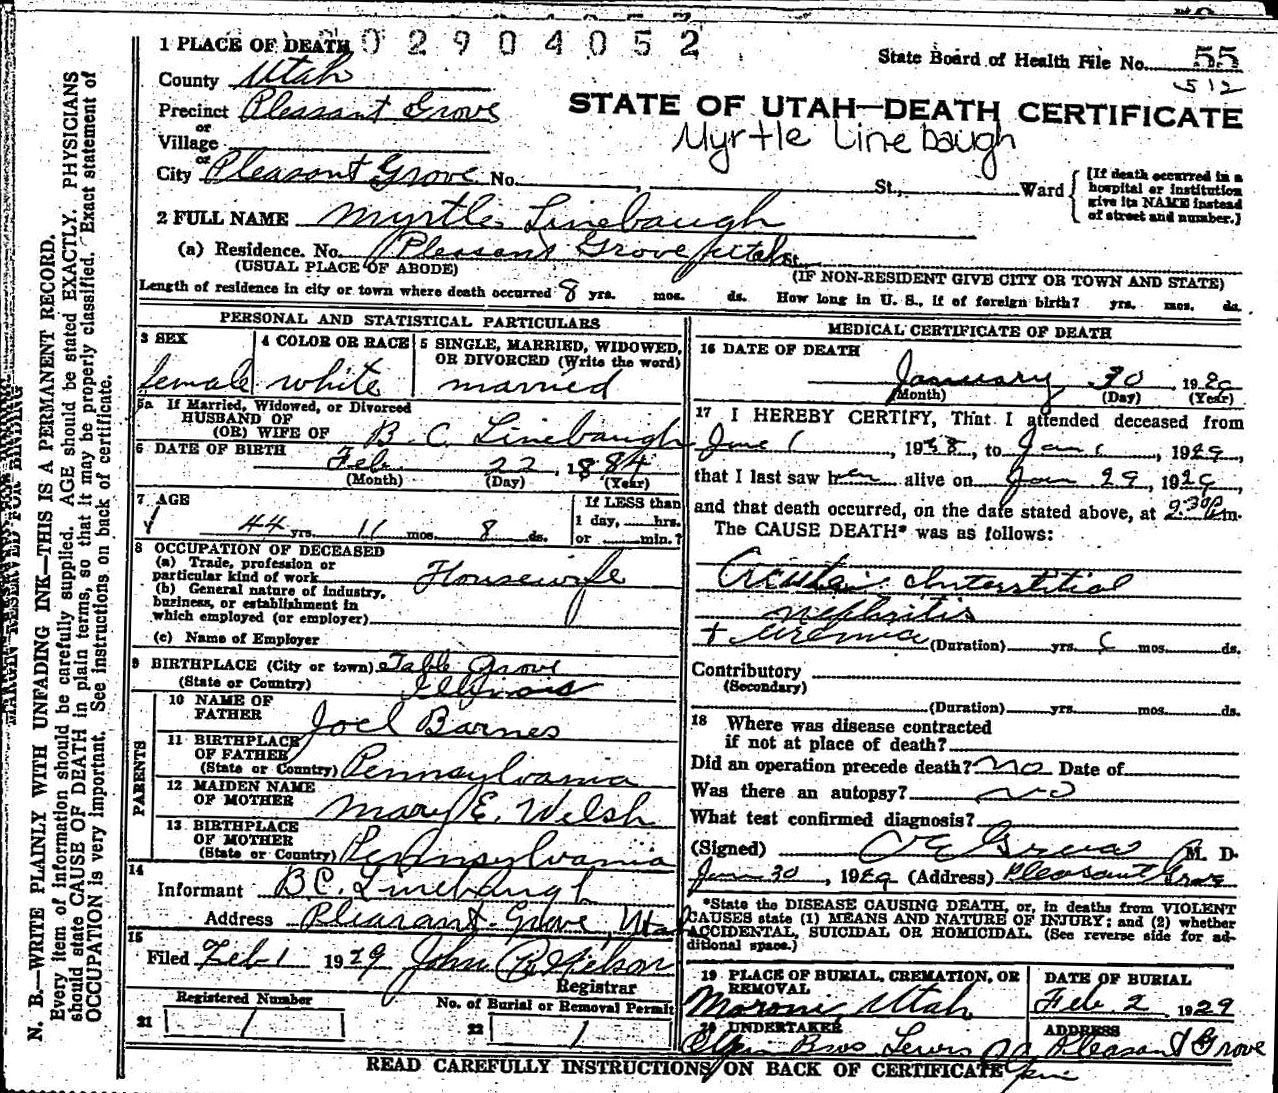 1 PLACE OF DEATH 02904052
State Board of Health File No. 55
512
County Utah
Precinct Pleasant Grove
or
Village
or
City Pleasant Grove No. , St., Ward
STATE OF UTAH—DEATH CERTIFICATE
Myrtle Linebaugh
[If death occurred in a
hospital or institution
give its NAME instead
of street and number.]
2 FULL NAME Myrtle Linebaugh
(a) Residence. No. Pleasant Grove Utah St.
(USUAL PLACE OF ABODE) (IF NON-RESIDENT GIVE CITY OR TOWN AND STATE)
Length of residence in city or town where death occurred 8 yrs. mos. ds. How long in U. S., if of foreign birth? yrs. mos. ds.
PERSONAL AND STATISTICAL PARTICULARS
3 SEX
female
4 COLOR OR RACE
white
5 SINGLE, MARRIED, WIDOWED,
OR DIVORCED (Write the word)
married
5a If Married, Widowed, or Divorced
HUSBAND OF
(OR) WIFE OF B. C. Linebaugh
6 DATE OF BIRTH Feb. 22, 1884
(Month) (Day) (Year)
7 AGE
44 yrs. 11 mos. 8 ds.
If LESS than
1 day, hrs.
or min.?
8 OCCUPATION OF DECEASED
(a) Trade, profession or
particular kind of work Housewife
(b) General nature of industry,
business, or establishment in
which employed (or employer)
(c) Name of Employer
9 BIRTHPLACE (City or town) Table Grove
(State or Country) Illinois
PARENTS
10 NAME OF
FATHER Joel Barnes
11 BIRTHPLACE
OF FATHER
(State or Country) Pennsylvania
12 MAIDEN NAME
OF MOTHER Mary E. Welsh
13 BIRTHPLACE
OF MOTHER
(State or Country) Pennsylvania
14
Informant B C. Linebaugh
Address Pleasant Grove, Utah
15
Filed Feb 1 1929 John
Registrar
Registered Number
21 1
No. of Burial or Removal Permit
22 1
MEDICAL CERTIFICATE OF DEATH
16 DATE OF DEATH
January 30, 1929
(Month) (Day) (Year)
17 I HEREBY CERTIFY, That I attended deceased from
June 1, 19 , to Jan , 1929,
that I last saw her alive on Jan 29, 1929,
and that death occurred, on the date stated above, at 2:30 P.m.
The CAUSE DEATH* was as follows:
Interstitial
nephritis
+ uremia (Duration) yrs. mos. ds.
Contributory
(Secondary)
(Duration) yrs. mos. ds.
18 Where was disease contracted
if not at place of death?
Did an operation precede death? no Date of
Was there an autopsy? no
What test confirmed diagnosis?
(Signed) M. D.
Jan 30, 1929 (Address) Pleasant Grove
*State the DISEASE CAUSING DEATH, or, in deaths from VIOLENT
CAUSES state (1) MEANS AND NATURE OF INJURY; and (2) whether
ACCIDENTAL, SUICIDAL OR HOMICIDAL. (See reverse side for ad-
ditional space.)
19 PLACE OF BURIAL, CREMATION, OR
REMOVAL
Moroni, Utah
DATE OF BURIAL
Feb. 2 1929
20 UNDERTAKER
Bros
ADDRESS
Pleasant Grove
READ CAREFULLY INSTRUCTIONS ON BACK OF CERTIFICATE
MARGIN RESERVED FOR BINDING
N. B.—WRITE PLAINLY WITH UNFADING INK—THIS IS A PERMANENT RECORD.
Every item of information should be carefully supplied. AGE should be stated EXACTLY. PHYSICIANS
should state CAUSE OF DEATH in plain terms, so that it may be properly classified. Exact statement of
OCCUPATION is very important. See instructions on back of certificate.